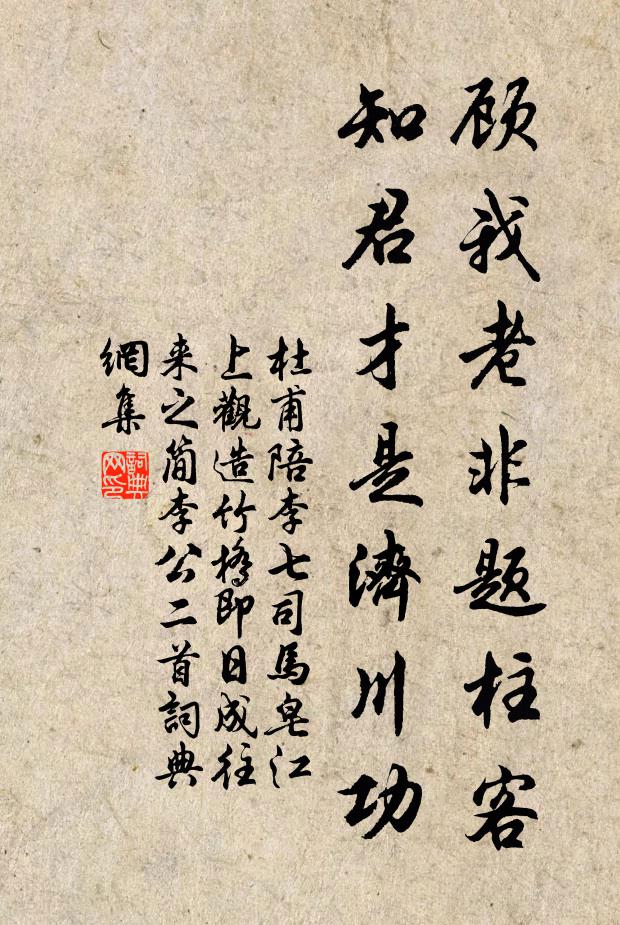 顾我老非题柱客
知君才是濟川功
杜甫陪李七司馬皂江
上觀造竹橋即日成往
来之简李公二首詞典
網集
詞典
网印